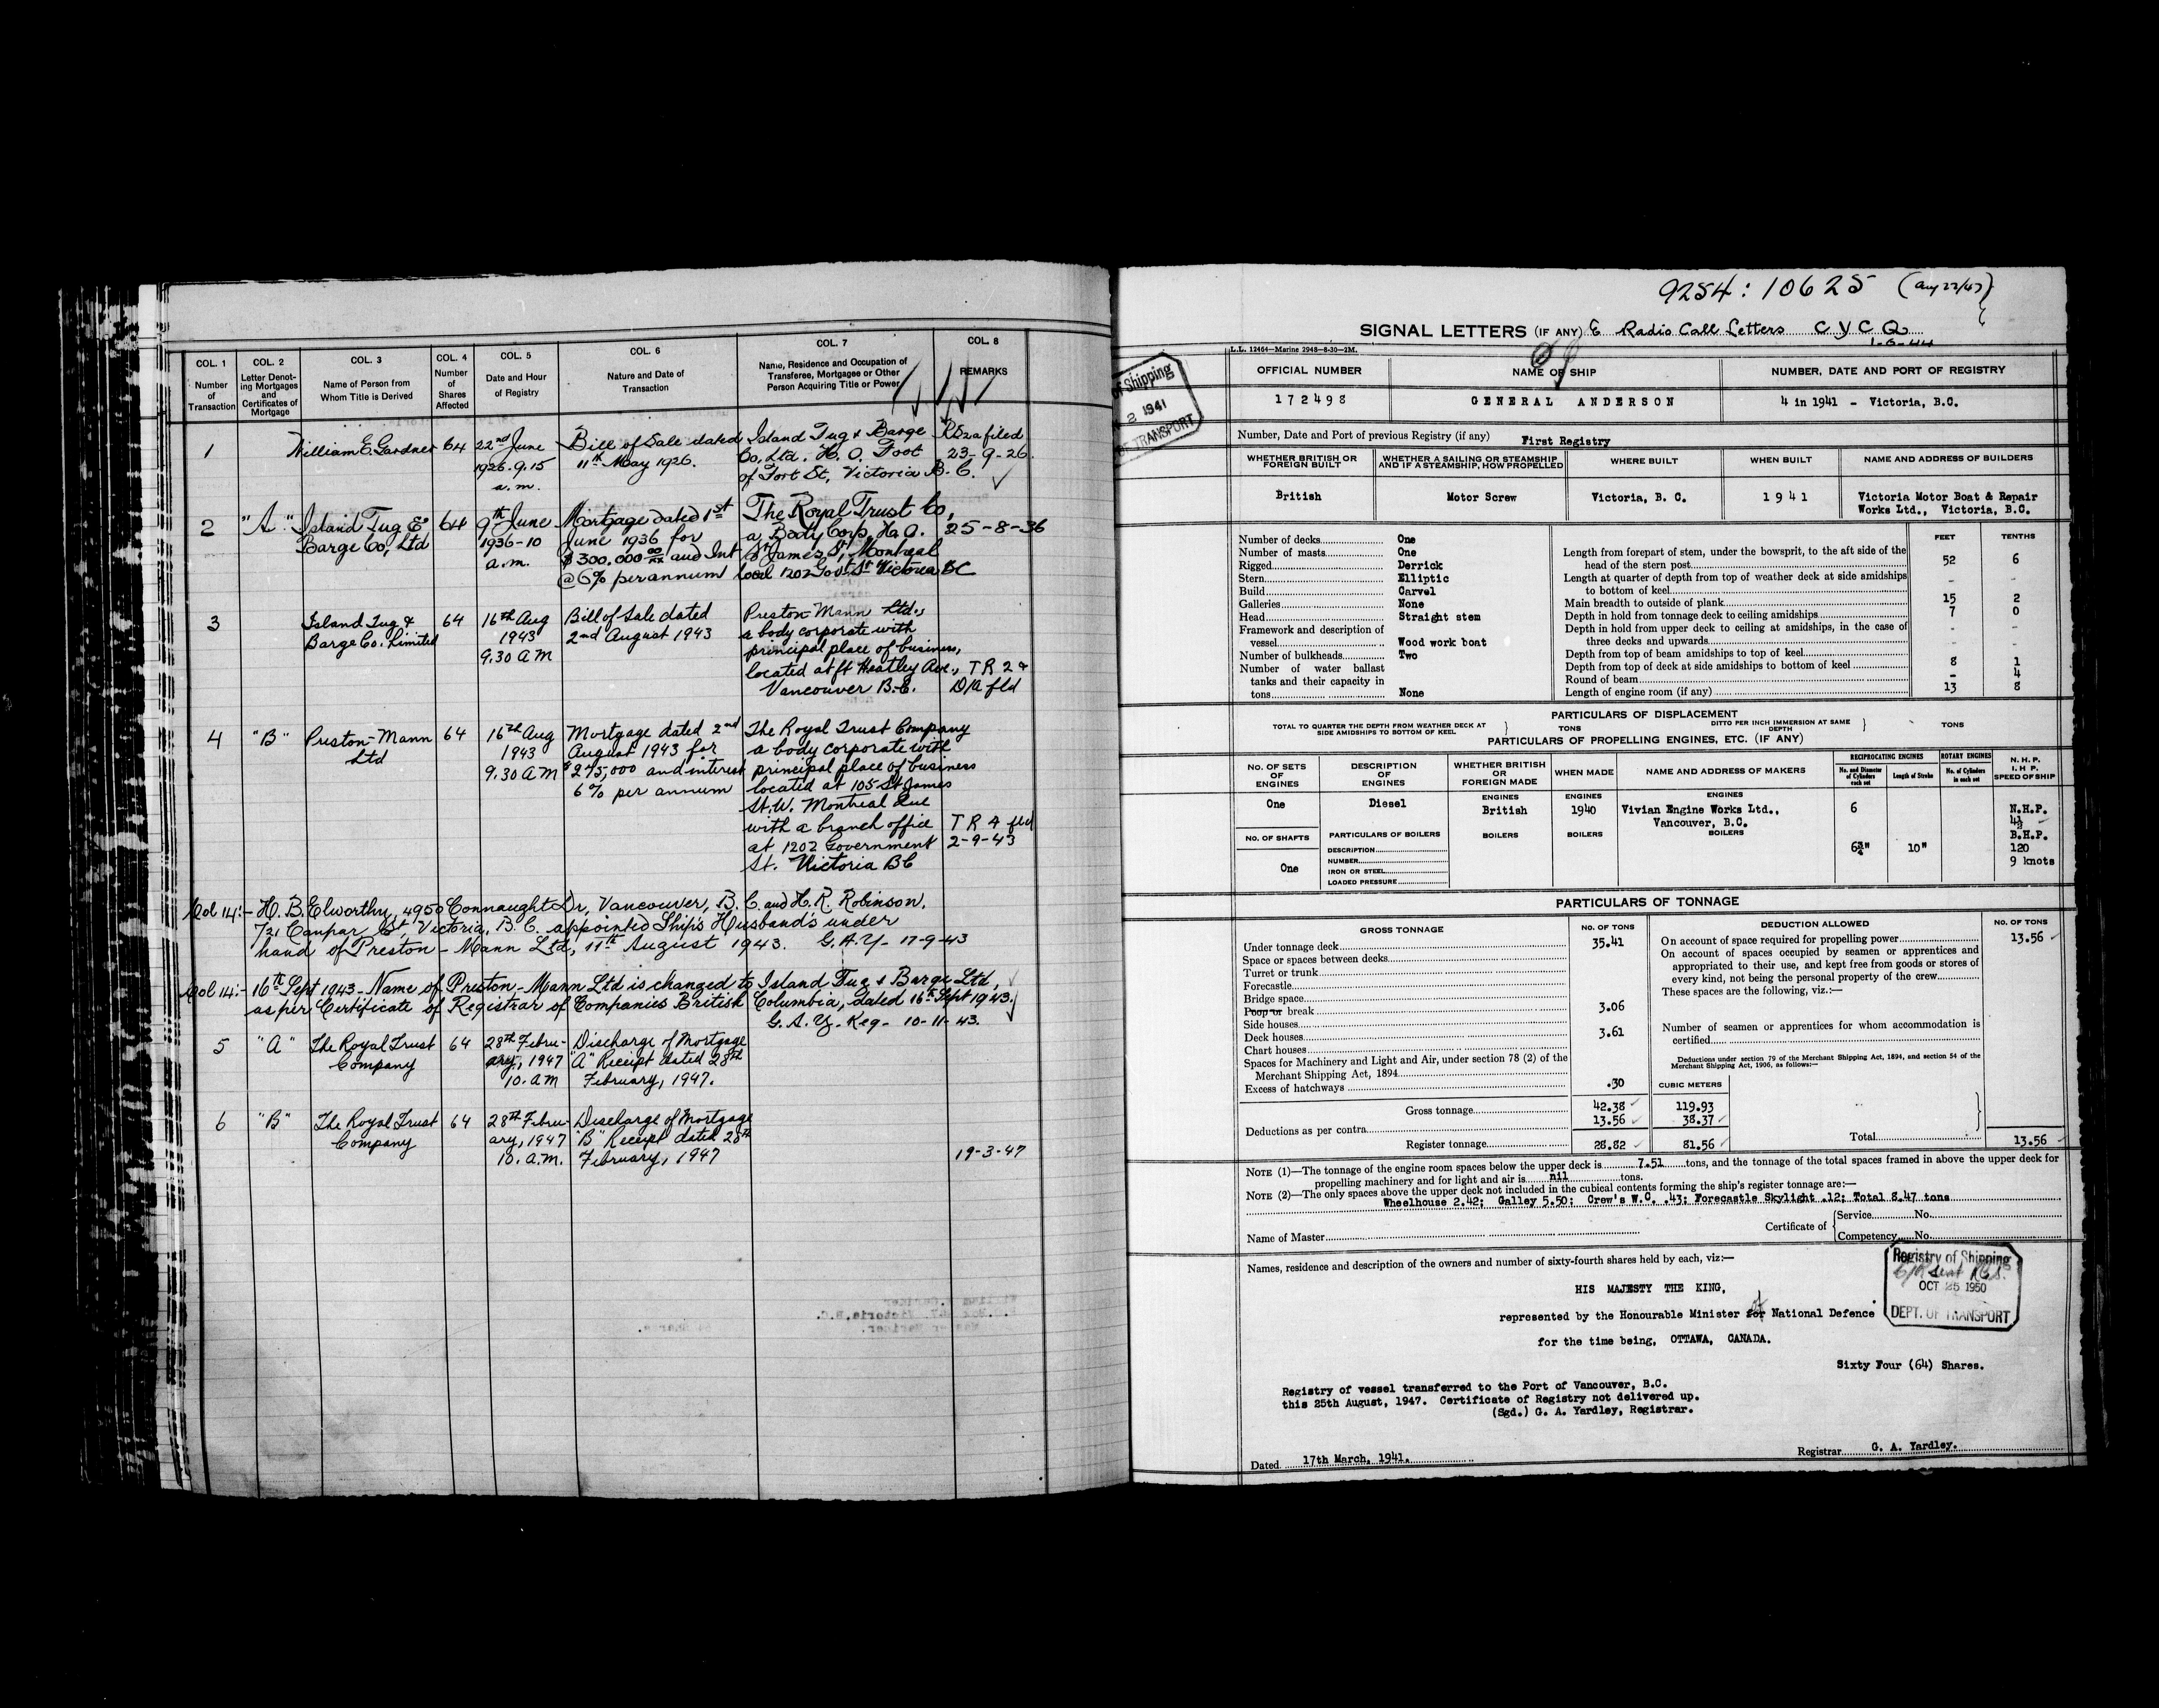 COL. 1
Number of Transaction
COL. 2
Letter Denoting Mortgages and Certificates of Mortgage
COL. 3
Name of Person from Whom Title is Derived
COL. 4
Number of Shares Affected
COL. 5
Date and Hour of Registry
COL. 6
Nature and Date of Transaction
COL. 7
Name, Residence and Occupation of Transferee, Mortgagee or Other Person Acquiring Title or Power
COL. 8
REMARKS
1 William E. Gardner 64 22nd June Bill of Sale dated Island Tug & Barge
1926. 9.15 11th May 1926. Co, Ltd. H. O. Foot 23-9-26.
a.m. of Fort St, Victoria B. C.
2 "A" Island Tug & 64 9th June Mortgage dated 1st The Royal Trust Co,
Barge Co, Ltd 1936-10 June 1936 for a Body Corp, H.O. 25-8-36
a.m. $300,000 00/xx and Int St James St, Montreal
@6% per annum local 1202 Govt. St Victoria BC
3 Island Tug & 64 16th Aug Bill of Sale dated Preston-Mann Ltd.,
Barge Co. Limited 1943 2nd August 1943 a body corporate with
9.30 AM principal place of business,
located at ft Heatley Ave., TR 2 &
Vancouver B.C. D/A fld
4 "B" Preston-Mann 64 16th Aug Mortgage dated 2nd The Royal Trust Company
Ltd 1943 August 1943 for a body corporate with
9.30 AM $275,000 and interest principal place of business
6% per annum located at 105 St James
St. W. Montreal Que
with a branch office TR 4 fld
at 1202 Government 2-9-43
St. Victoria BC
Col 14:- H. B. Elworthy, 4950 Connaught Dr, Vancouver, B. C. and H. R. Robinson,
721 St, Victoria, B. C. appointed Ship's Husband's under
hand of Preston-Mann Ltd, 11th August 1943. G.A.Y. 17-9-43
Col 14:- 16th Sept 1943 - Name of Preston-Mann Ltd is changed to Island Tug & Barge Ltd,
as per Certificate of Registrar of Companies British Columbia, dated 16th Sept 1943.
G. A. Y. Reg- 10-11-43.
5 "A" The Royal Trust 64 28th Febru- Discharge of Mortgage
Company ary, 1947 "A" Receipt dated 28th
10. AM February, 1947.
6 "B" The Royal Trust 64 28th Febru- Discharge of Mortgage
Company ary, 1947 "B" Receipt dated 28th
10. A.M. February, 1947 19-3-47
9254: 10625 (Aug 22/47)
SIGNAL LETTERS (IF ANY) & Radio Call Letters C Y C Q
1-6-44
L.L. 12464—Marine 2948—8-30—2M.
of Shipping
2 1941
OF TRANSPORT
OFFICIAL NUMBER NAME OF SHIP NUMBER, DATE AND PORT OF REGISTRY
172498 GENERAL ANDERSON 4 in 1941 - Victoria, B.C.
Number, Date and Port of previous Registry (if any) First Registry
WHETHER BRITISH OR FOREIGN BUILT
WHETHER A SAILING OR STEAMSHIP AND IF A STEAMSHIP, HOW PROPELLED
WHERE BUILT
WHEN BUILT
NAME AND ADDRESS OF BUILDERS
British Motor Screw Victoria, B. C. 1941 Victoria Motor Boat & Repair
Works Ltd., Victoria, B.C.
Number of decks One
Number of masts One
Rigged Derrick
Stern Elliptic
Build Carvel
Galleries None
Head Straight stem
Framework and description of
vessel Wood work boat
Number of bulkheads Two
Number of water ballast
tanks and their capacity in
tons None
FEET TENTHS
Length from forepart of stem, under the bowsprit, to the aft side of the
head of the stern post 52 6
Length at quarter of depth from top of weather deck at side amidships
to bottom of keel - -
Main breadth to outside of plank 15 2
Depth in hold from tonnage deck to ceiling amidships 7 0
Depth in hold from upper deck to ceiling at amidships, in the case of
three decks and upwards - -
Depth from top of beam amidships to top of keel - -
Depth from top of deck at side amidships to bottom of keel 8 1
Round of beam - 4
Length of engine room (if any) 13 8
PARTICULARS OF DISPLACEMENT
TOTAL TO QUARTER THE DEPTH FROM WEATHER DECK AT SIDE AMIDSHIPS TO BOTTOM OF KEEL } TONS DITTO PER INCH IMMERSION AT SAME DEPTH } TONS
PARTICULARS OF PROPELLING ENGINES, ETC. (IF ANY)
NO. OF SETS OF ENGINES
DESCRIPTION OF ENGINES
WHETHER BRITISH OR FOREIGN MADE
WHEN MADE
NAME AND ADDRESS OF MAKERS
RECIPROCATING ENGINES
No. and Diameter of Cylinders each set
Length of Stroke
ROTARY ENGINES
No. of Cylinders in each set
N. H. P.
I. H. P.
SPEED OF SHIP
ENGINES ENGINES ENGINES
One Diesel British 1940 Vivian Engine Works Ltd., 6 N.H.P.
Vancouver, B.C.
B.H.P.
NO. OF SHAFTS PARTICULARS OF BOILERS BOILERS BOILERS BOILERS
DESCRIPTION 6¾" 10" 120
NUMBER 9 knots
One IRON OR STEEL
LOADED PRESSURE
PARTICULARS OF TONNAGE
GROSS TONNAGE NO. OF TONS
Under tonnage deck 35.41
Space or spaces between decks
Turret or trunk
Forecastle
Bridge space
Poop or break 3.06
Side houses
Deck houses 3.61
Chart houses
Spaces for Machinery and Light and Air, under section 78 (2) of the
Merchant Shipping Act, 1894
Excess of hatchways .30
CUBIC METERS
Gross tonnage 42.38 119.93
Deductions as per contra 13.56 38.37
Register tonnage 28.82 81.56
DEDUCTION ALLOWED NO. OF TONS
On account of space required for propelling power 13.56
On account of spaces occupied by seamen or apprentices and
appropriated to their use, and kept free from goods or stores of
every kind, not being the personal property of the crew
These spaces are the following, viz.:—
Number of seamen or apprentices for whom accommodation is
certified
Deductions under section 79 of the Merchant Shipping Act, 1894, and section 54 of the
Merchant Shipping Act, 1906, as follows:—
Total 13.56
NOTE (1)—The tonnage of the engine room spaces below the upper deck is 7.51 tons, and the tonnage of the total spaces framed in above the upper deck for
propelling machinery and for light and air is nil tons.
NOTE (2)—The only spaces above the upper deck not included in the cubical contents forming the ship's register tonnage are:—
Wheelhouse 2.42; Galley 5.50; Crew's W.C. .43; Forecastle Skylight .12; Total 8.47 tons
Name of Master
Certificate of { Service No.
Competency No.
Names, residence and description of the owners and number of sixty-fourth shares held by each, viz:—
Registry of Shipping
OCT 25 1950
DEPT. OF TRANSPORT
HIS MAJESTY THE KING,
represented by the Honourable Minister for of National Defence
for the time being, OTTAWA, CANADA.
Sixty Four (64) Shares.
Registry of vessel transferred to the Port of Vancouver, B.C.
this 25th August, 1947. Certificate of Registry not delivered up.
(Sgd.) G. A. Yardley, Registrar.
Dated 17th March, 1941. Registrar G. A. Yardley.